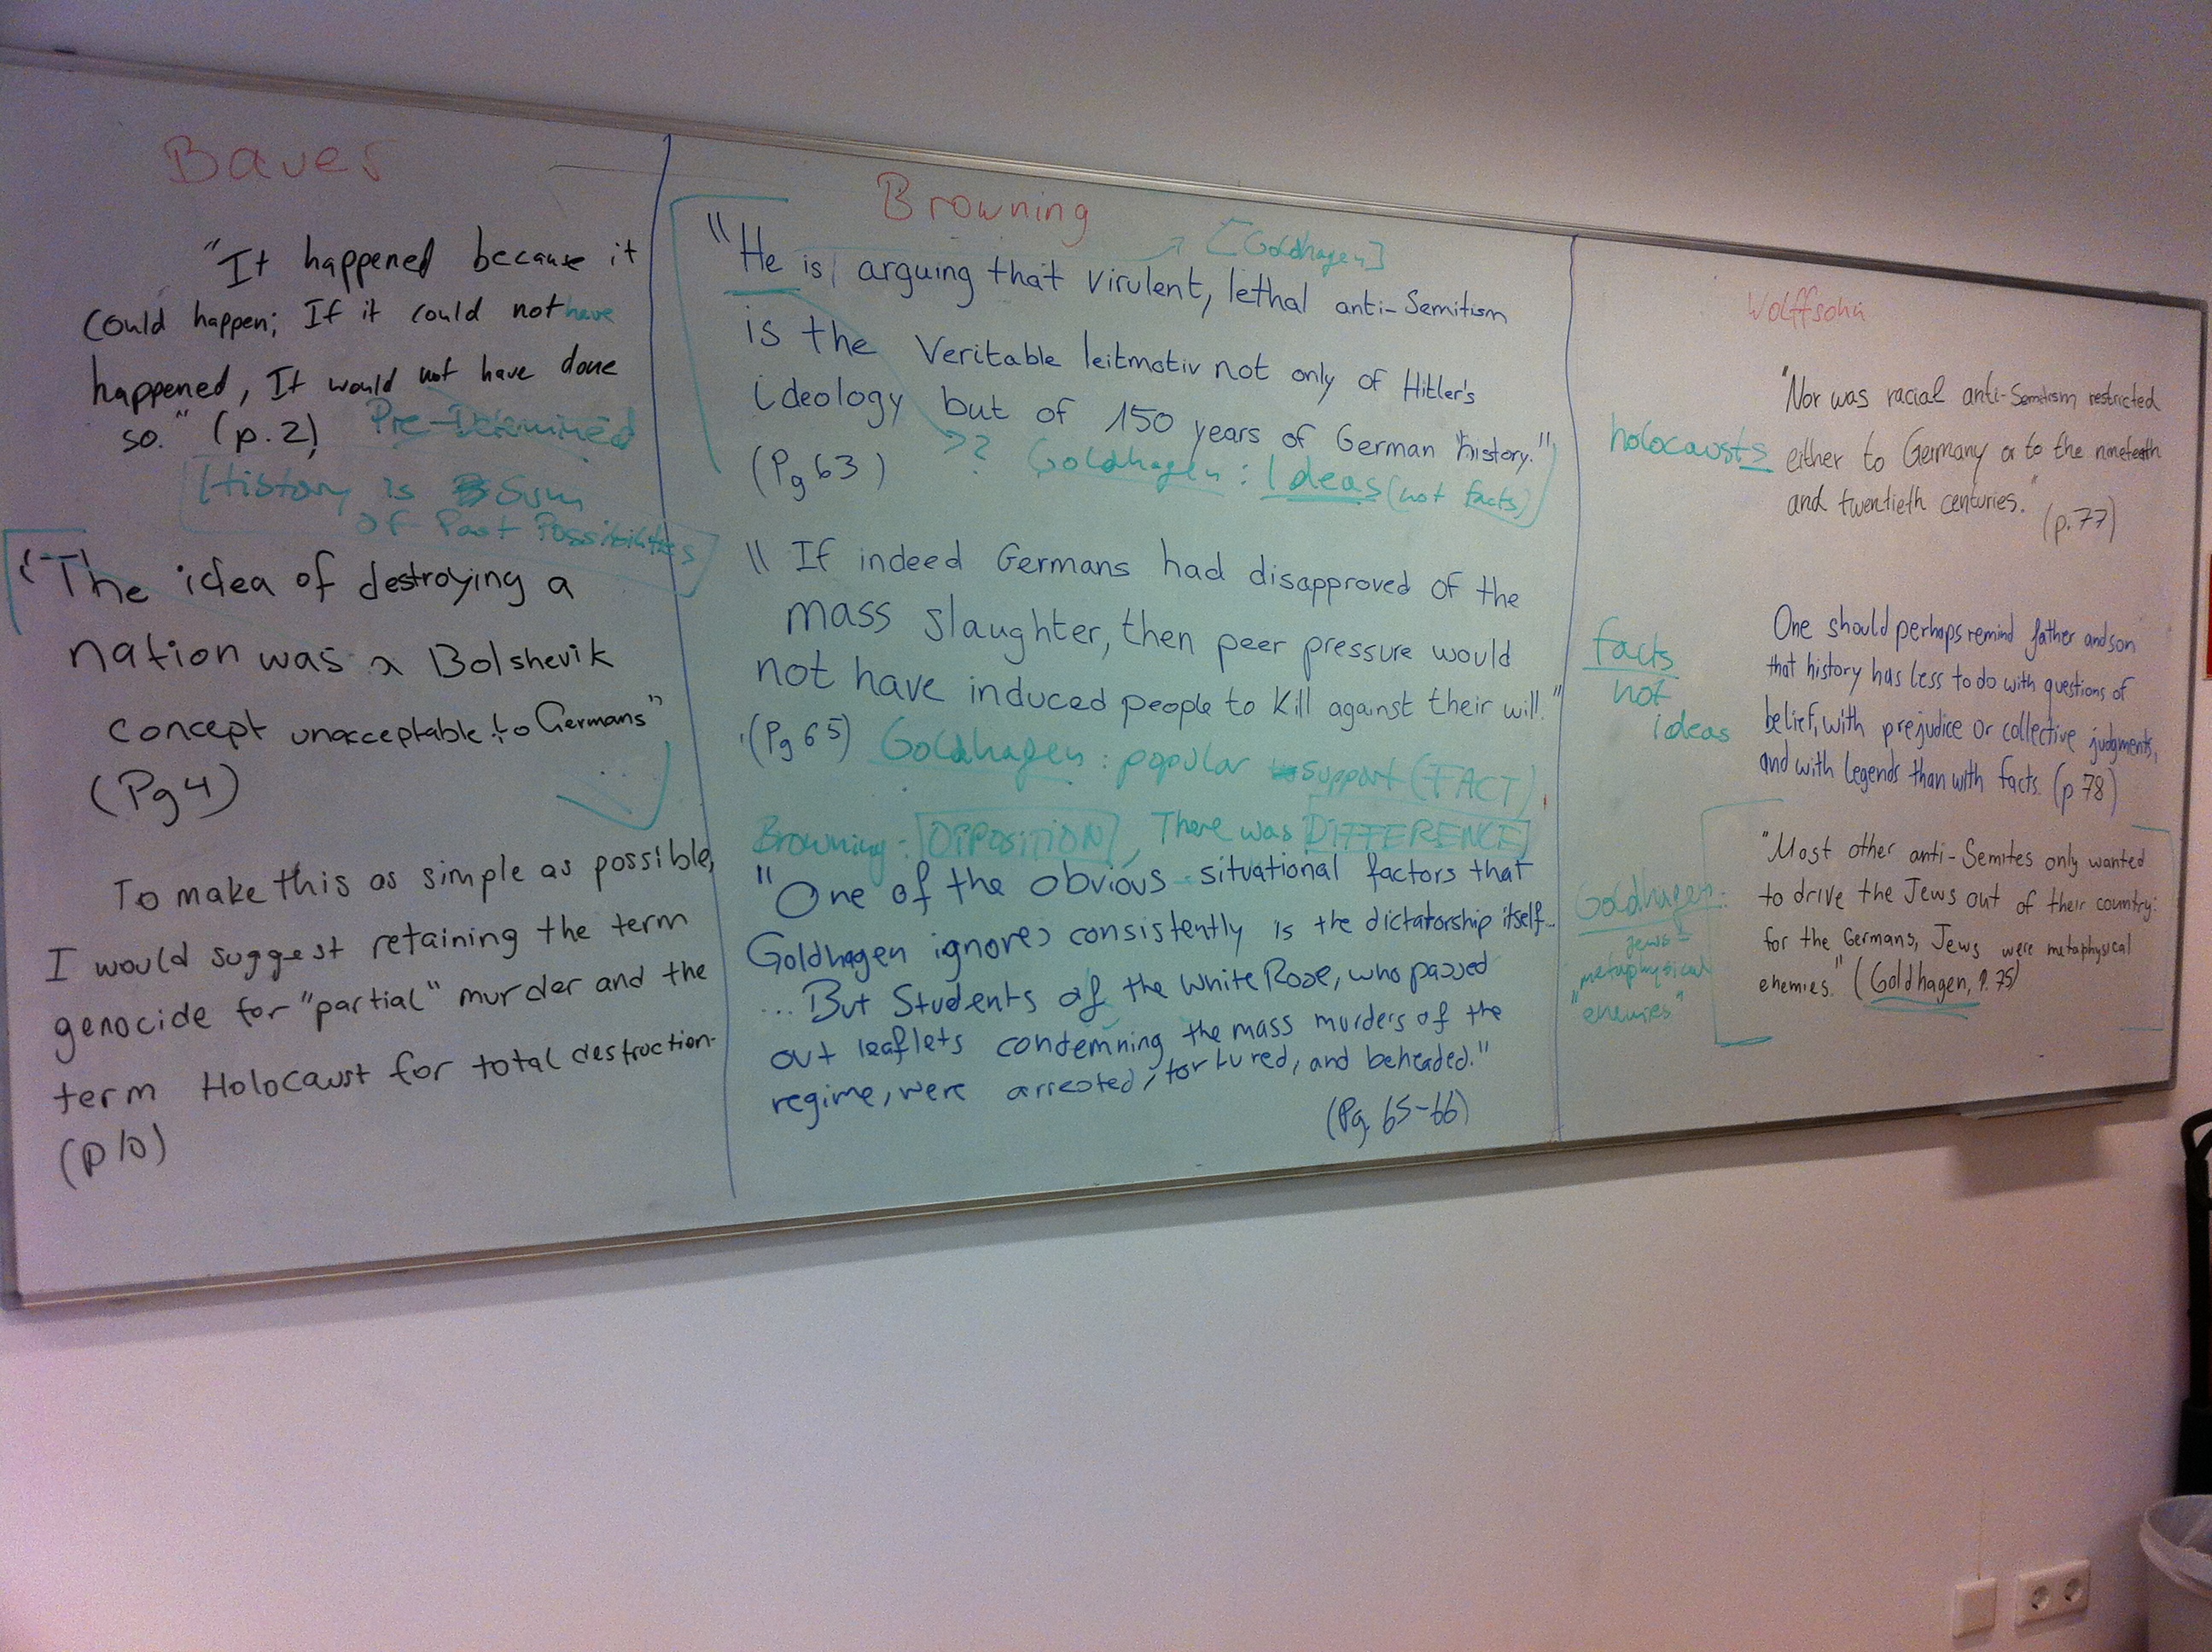 Bauer
"It happened because it
could happen; If it could not have
happened, It would not have done
so." (p.2)
Pre-Determined
History is Sum
of Past Possibilities
"The idea of destroying a
nation was a Bolshevik
concept unacceptable to Germans"
(Pg 4)
To make this as simple as possible,
I would suggest retaining the term
genocide for "partial" murder and the
term Holocaust for total destruction.
(p 10)
Browning
[Goldhagen]
"He is arguing that virulent, lethal anti-Semitism
is the veritable leitmotiv not only of Hitler's
ideology but of 150 years of German history."
(Pg 63)
?? Goldhagen: Ideas (not facts)
"If indeed Germans had disapproved of the
mass slaughter, then peer pressure would
not have induced people to kill against their will."
(Pg 65)
Goldhagen: popular support (FACT)
Browning: OPPOSITION, There was DIFFERENCE
"One of the obvious situational factors that
Goldhagen ignores consistently is the dictatorship itself...
... But Students of the White Rose, who passed
out leaflets condemning the mass murders of the
regime, were arrested, tortured, and beheaded."
(Pg. 65-66)
Wolffsohn
holocausts
"Nor was racial anti-Semitism restricted
either to Germany or to the nineteenth
and twentieth centuries."
(p.77)
facts
not
ideas
One should perhaps remind father and son
that history has less to do with questions of
belief, with prejudice or collective judgments,
and with legends than with facts. (p 78)
Goldhagen:
Jews =
"metaphysical
enemies"
"Most other anti-Semites only wanted
to drive the Jews out of their country:
for the Germans, Jews were metaphysical
enemies." (Goldhagen, p. 75)